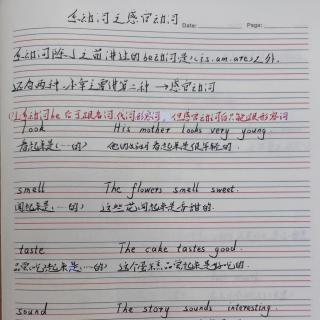 系动词之感官动词
Date:
Page:
系动词除了之前讲过的be动词是(is.am.are)之外,
还有两种,本章主要讲第二种→感官动词
系动词be后可跟名词,代词形容词,但感官动词后只能跟形容词
look His mother looks very young.
看起来是(……的) 他的妈妈看起来是很年轻的.
smell The flowers smell sweet.
闻起来是(……的) 这些花闻起来是香甜的.
taste The cake tastes good.
品尝/吃起来是(……的) 这个蛋糕品尝起来是好吃的.
sound The story sounds interesting.